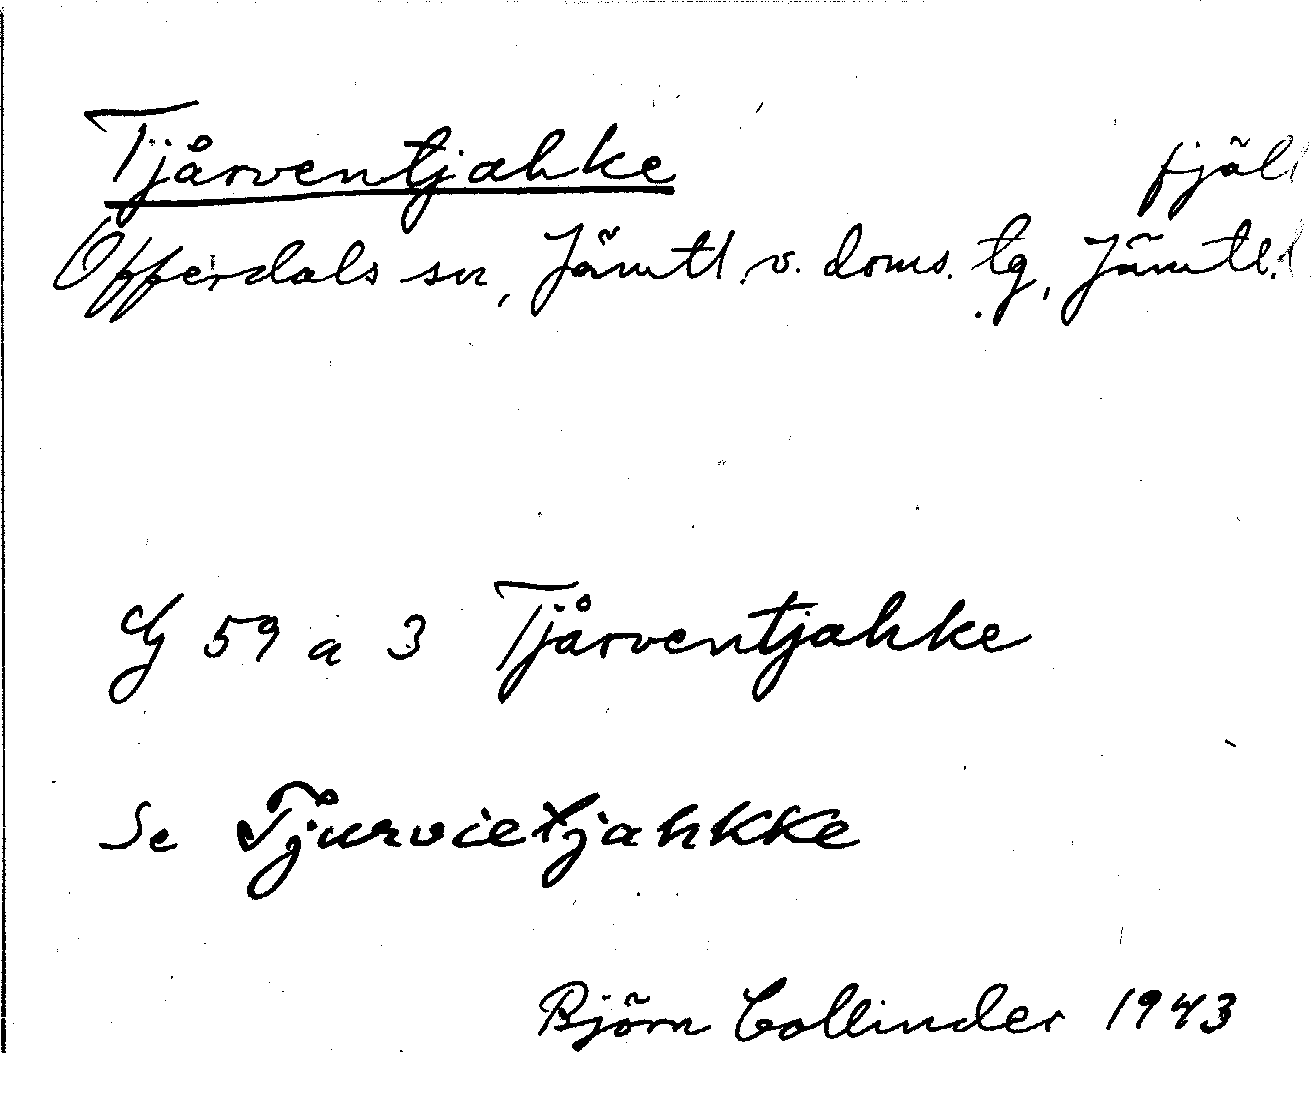 Tjårventjahke fjäll
Offerdals sn, Jämtl. v. doms. tg, Jämtl. l
G 59 a 3 Tjårventjahke
Se Tjurvietjahkke
Björn Collinder 1943